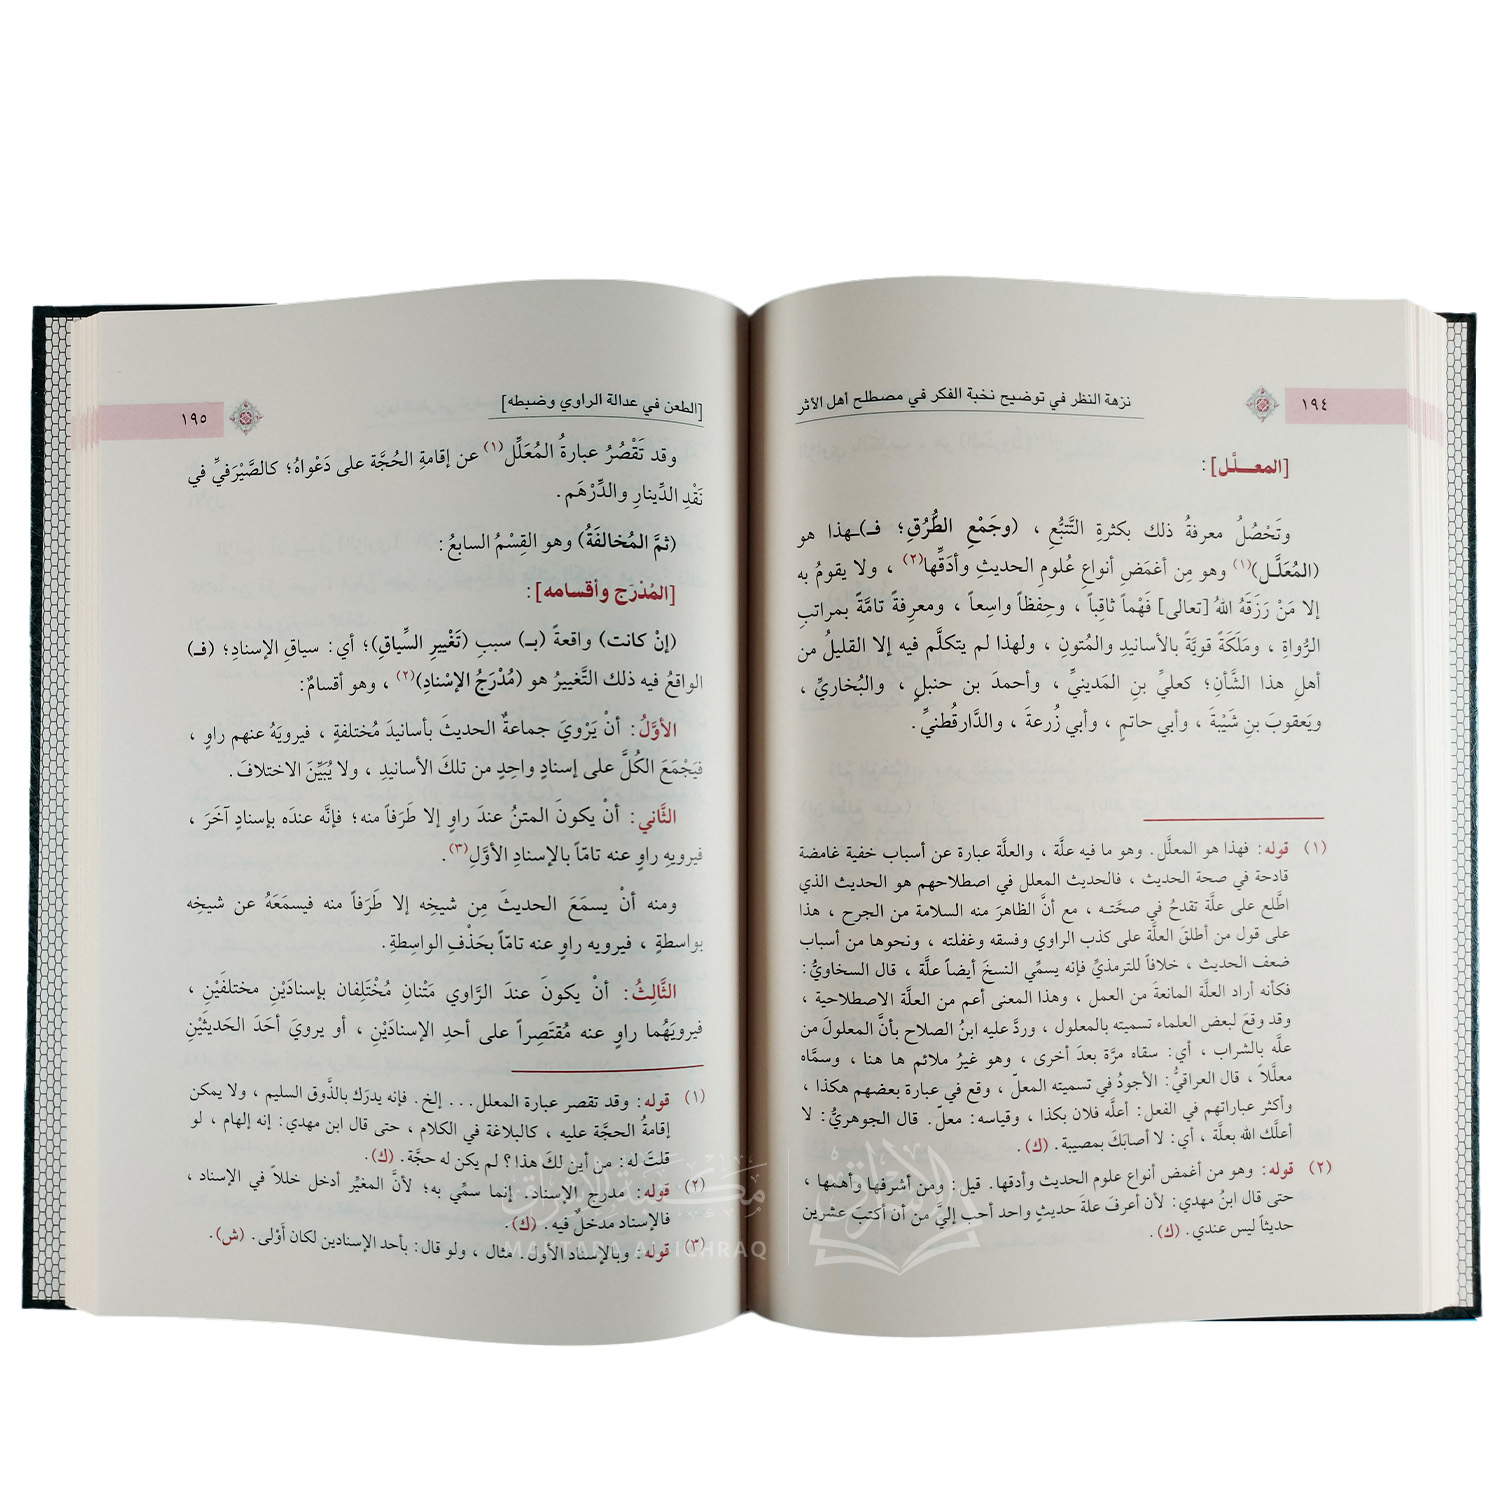 ١٩٤
نزهة النظر في توضيح نخبة الفكر في مصطلح أهل الأثر
[المعــلَّل]:
وتَحْصُلُ معرفةُ ذلك بكثرةِ التَّتبُّعِ ، (وجَمْعِ الطُّرُقِ؛ فـ)ـهذا هو
(المُعَلَّـل)(١) وهو مِن أغمَضِ أنواعِ عُلومِ الحديثِ وأدَقِّها(٢) ، ولا يقومُ به
إلا مَنْ رَزَقَهُ اللهُ [تعالى] فَهْماً ثاقِباً ، وحِفظاً واسِعاً ، ومعرِفةً تامَّةً بمراتبِ
الرُّواةِ ، ومَلَكَةً قويَّةً بالأسانيدِ والمُتونِ ، ولهذا لم يتكلَّم فيه إلا القليلُ من
أهلِ هذا الشَّأنِ؛ كعليِّ بنِ المَدينيِّ ، وأحمدَ بن حنبلٍ ، والبُخاريِّ ،
ويَعقوبَ بنِ شَيْبَةَ ، وأبي حاتمٍ ، وأبي زُرعةَ ، والدَّارقُطنيِّ.
(١) قوله: فهذا هو المعلَّل. وهو ما فيه علَّة ، والعلَّة عبارة عن أسباب خفية غامضة
قادحة في صحة الحديث ، فالحديث المعلل في اصطلاحهم هو الحديث الذي
اطَّلع على علَّة تقدحُ في صحَّتـه ، مع أنَّ الظاهرَ منه السلامة من الجرح ، هذا
على قول من أطلقَ العلَّة على كذب الراوي وفسقه وغفلته ، ونحوها من أسباب
ضعف الحديث ، خلافاً للترمذيِّ فإنه يسمِّي النسخَ أيضاً علَّة ، قال السخاويُّ:
فكأنه أراد العلَّة المانعةَ من العمل ، وهذا المعنى أعم من العلَّة الاصطلاحية ،
وقد وقعَ لبعض العلماء تسميته بالمعلول ، وردَّ عليه ابنُ الصلاح بأنَّ المعلولَ من
علَّه بالشراب ، أي: سقاه مرَّة بعدَ أخرى ، وهو غيرُ ملائم ها هنا ، وسمَّاه
معلَّلاً ، قال العراقيُّ: الأجودُ في تسميته المعلّ ، وقع في عبارة بعضهم هكذا ،
وأكثر عباراتهم في الفعل: أعلَّه فلان بكذا ، وقياسه: معلّ. قال الجوهريُّ: لا
أعلَّك الله بعلَّة ، أي: لا أصابَكَ بمصيبة. (ك).
(٢) قوله: وهو من أغمض أنواع علوم الحديث وأدقها. قيل: ومن أشرفها وأهمها ،
حتى قال ابنُ مهدي: لأن أعرفَ علةَ حديثٍ واحد أحب إليَّ من أن أكتبَ عشرين
حديثاً ليس عندي. (ك).
[الطعن في عدالة الراوي وضبطه]
١٩٥
وقد تَقْصُرُ عبارةُ المُعَلِّل(١) عن إقامةِ الحُجَّة على دَعْواهُ؛ كالصَّيْرَفيِّ في
نَقْدِ الدِّينارِ والدِّرْهَم.
(ثمَّ المُخالفَةُ) وهو القِسْمُ السابعُ:
[المُدْرَج وأقسامه]:
(إنْ كانت) واقعةً (بـ) سببِ (تَغْييرِ السِّياقِ)؛ أي: سياقِ الإسنادِ؛ (فـ)
الواقعُ فيه ذلك التَّغييرُ هو (مُدْرَجُ الإسْنادِ)(٢) ، وهو أقسامٌ:
الأوَّلُ: أنْ يَرْويَ جماعةٌ الحديثَ بأسانيدَ مُختلفةٍ ، فيرويَهُ عنهم راوٍ ،
فيَجْمَعَ الكُلَّ على إسنادٍ واحِدٍ من تلكَ الأسانيدِ ، ولا يُبَيِّنَ الاختلافَ.
الثَّاني: أنْ يكونَ المتنُ عندَ راوٍ إلا طَرَفاً منه؛ فإنَّه عندَه بإسنادٍ آخَرَ ،
فيرويهِ راوٍ عنه تامّاً بالإسنادِ الأوَّلِ(٣).
ومنه أنْ يسمَعَ الحديثَ مِن شيخِه إلا طَرَفاً منه فيسمَعَهُ عن شيخِه
بواسطةٍ ، فيرويه راوٍ عنه تامّاً بحَذْفِ الواسِطةِ.
الثَّالِثُ: أنْ يكونَ عندَ الرَّاوي مَتْنانِ مُخْتَلِفان بإسنادَيْنِ مختلفَيْنِ ،
فيرويَهُما راوٍ عنه مُقتَصِراً على أحدِ الإسنادَيْنِ ، أو يرويَ أحَدَ الحَديثَيْنِ
(١) قوله: وقد تقصر عبارة المعلل... إلخ. فإنه يدرَك بالذَّوق السليم ، ولا يمكن
إقامةُ الحجَّة عليه ، كالبلاغة في الكلام ، حتى قال ابن مهدي: إنه إلهام ، لو
قلتَ له: من أين لكَ هذا؟ لم يكن له حجَّة. (ك).
(٢) قوله: مدرج الإسناد. إنما سمِّي به؛ لأنَّ المغيِّر أدخل خللاً في الإسناد ،
فالإسناد مدخلٌ فيه. (ك).
(٣) قوله: وبالإسناد الأول. مثال ، ولو قال: بأحد الإسنادين لكان أَوْلى. (ش).
مكتبة الإشراق
MAKTABA AL-ICHRAQ
الإشراق